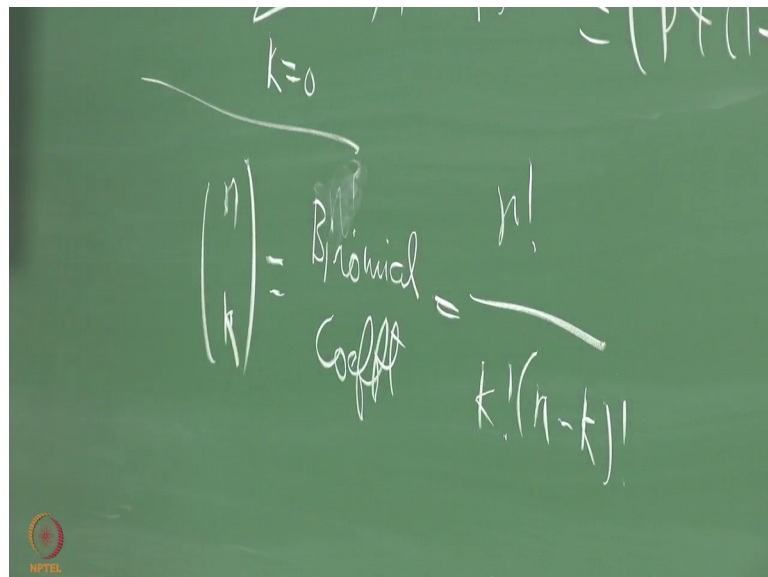 k=0
= (p+(1-
(n k) = Binomial Coefft = n! / k!(n-k)!
NPTEL